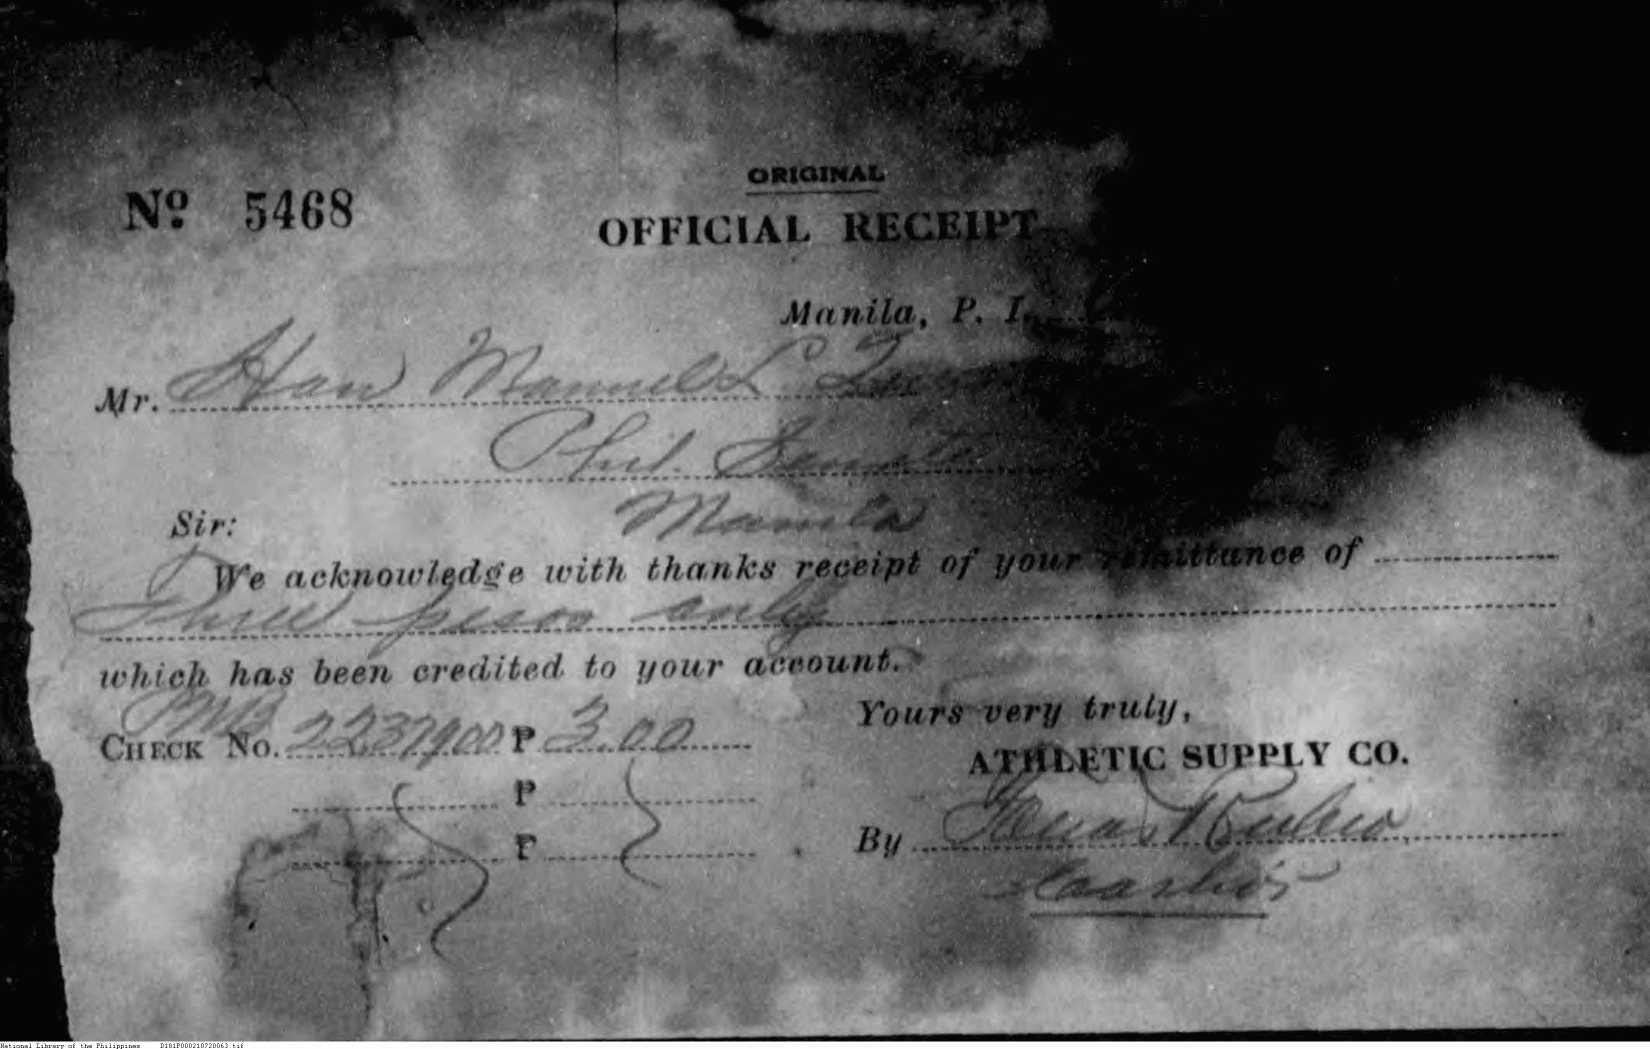 ORIGINAL
Nº 5468
OFFICIAL RECEIPT
Manila, P. I.
Mr. Hon Manuel L.
Phil. Senate
Manila
Sir:
We acknowledge with thanks receipt of your remittance of
Three pesos only
which has been credited to your account.
PNB
CHECK NO. 223790 ₱ 3.00
₱
₱
Yours very truly,
ATHLETIC SUPPLY CO.
By Rubio
Cashier
National Library of the Philippines D101P000210720063.tif